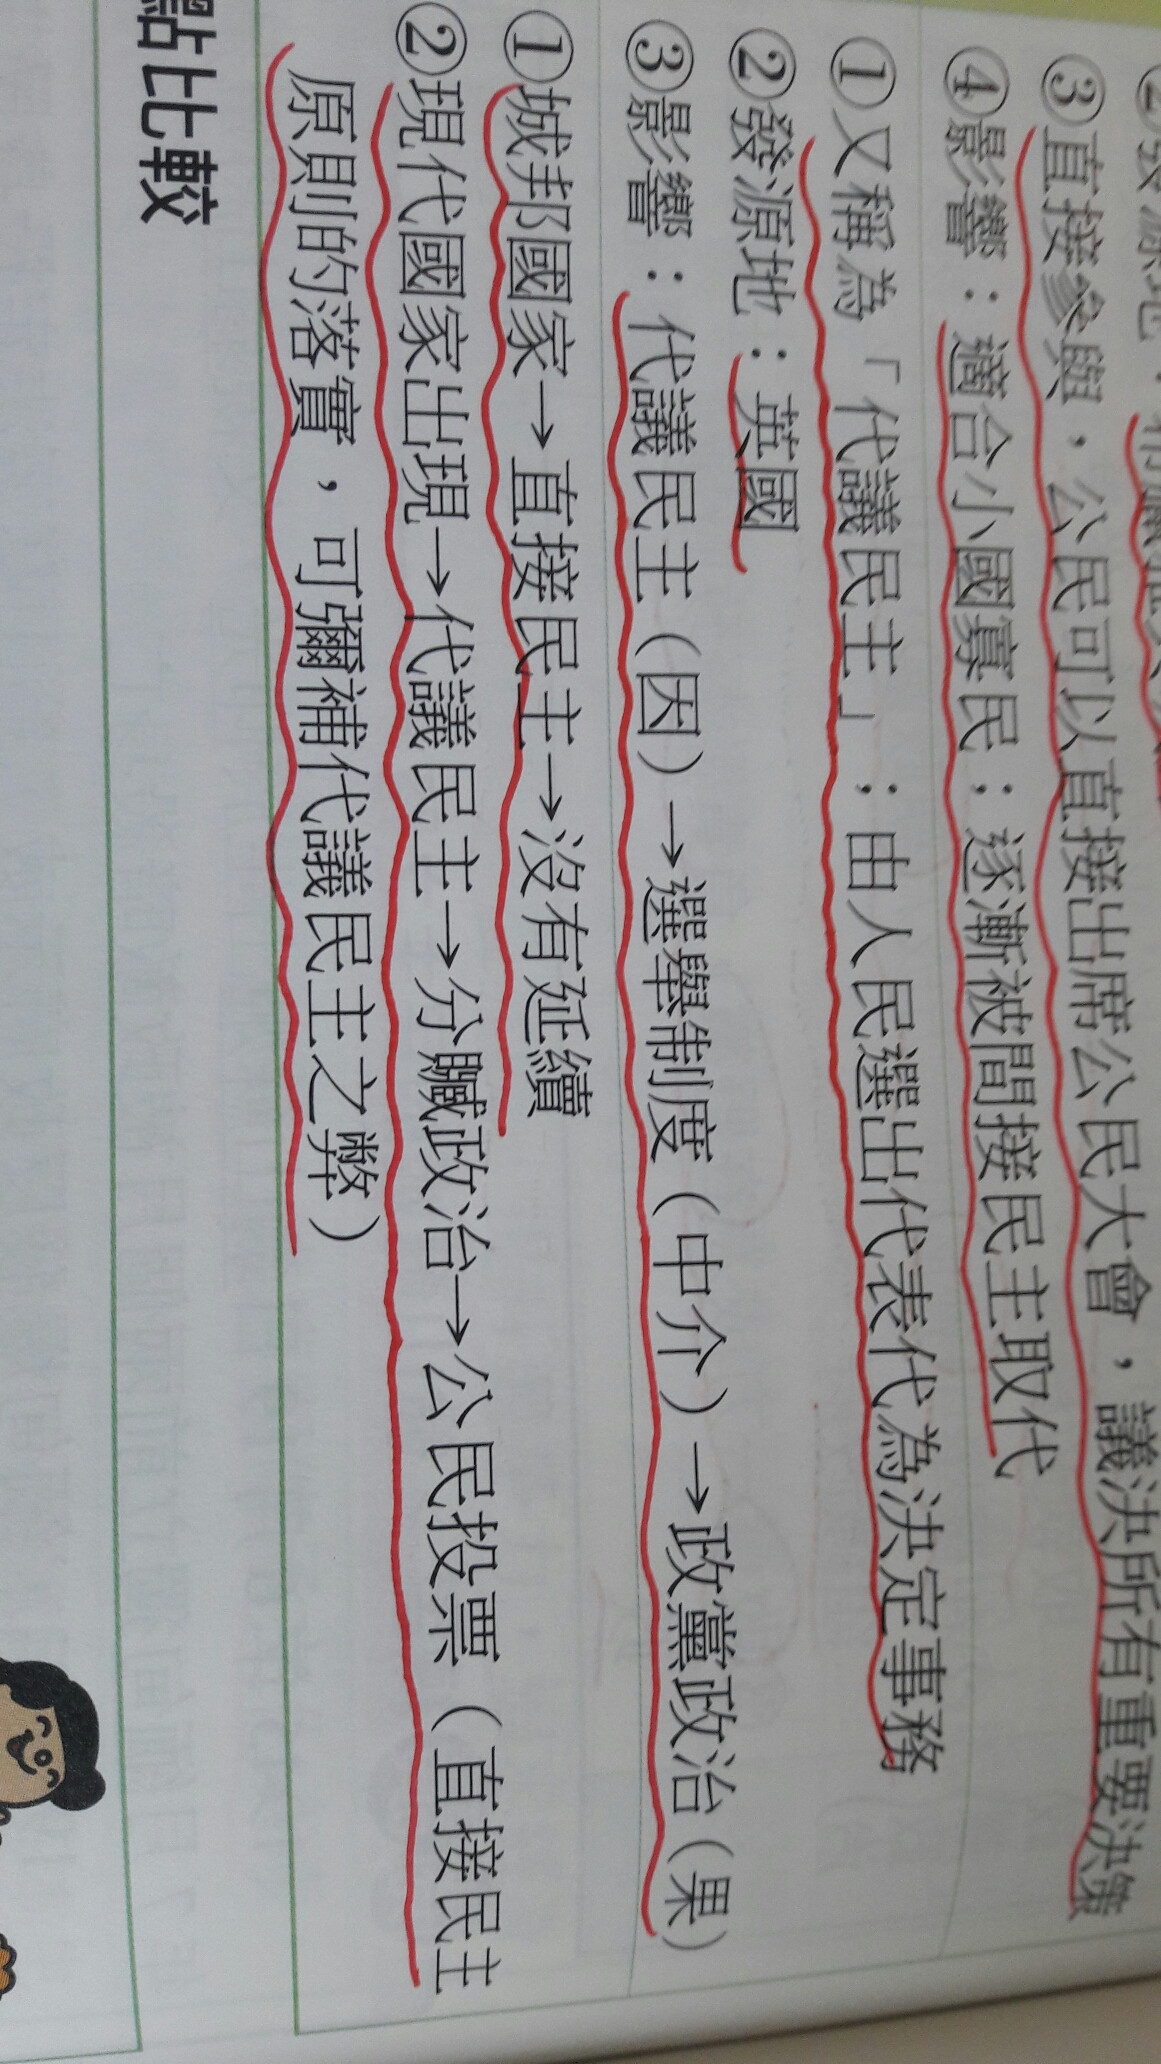 ②發源地：
③直接參與，公民可以直接出席公民大會，議決所有重要決策
④影響：適合小國寡民；逐漸被間接民主取代
①又稱為「代議民主」；由人民選出代表代為決定事務
②發源地：英國
③影響：代議民主（因）→選舉制度（中介）→政黨政治（果）
①城邦國家→直接民主→沒有延續
②現代國家出現→代議民主→分贓政治→公民投票（直接民主
原則的落實，可彌補代議民主之弊）
點比較